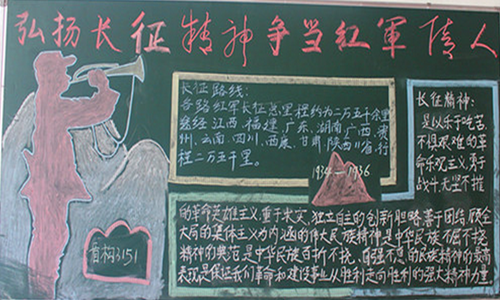 弘扬长征精神争当红軍傳人
长征路线:
各路红军长征总里程约为二万五千余里
途经江西、福建、广东、湖南、广西、贵
州、云南、四川、西康、甘肃、陕西11省,行
程二万五千里。
1934-1936
长征精神:
是以乐于吃苦、
不惧艰难的革
命乐观主义;勇于
战斗、无坚不摧
的革命英雄主义,重于求实、独立自主的创新胆略;善于团结、顾全
大局的集体主义为内涵的伟大民族精神是中华民族不屈不挠
精神的典范是中华民族百折不挠、自强不息的民族精神的最高
表现,是保证我们革命和建设事业从胜利走向胜利的强大精神力量
盾构3151